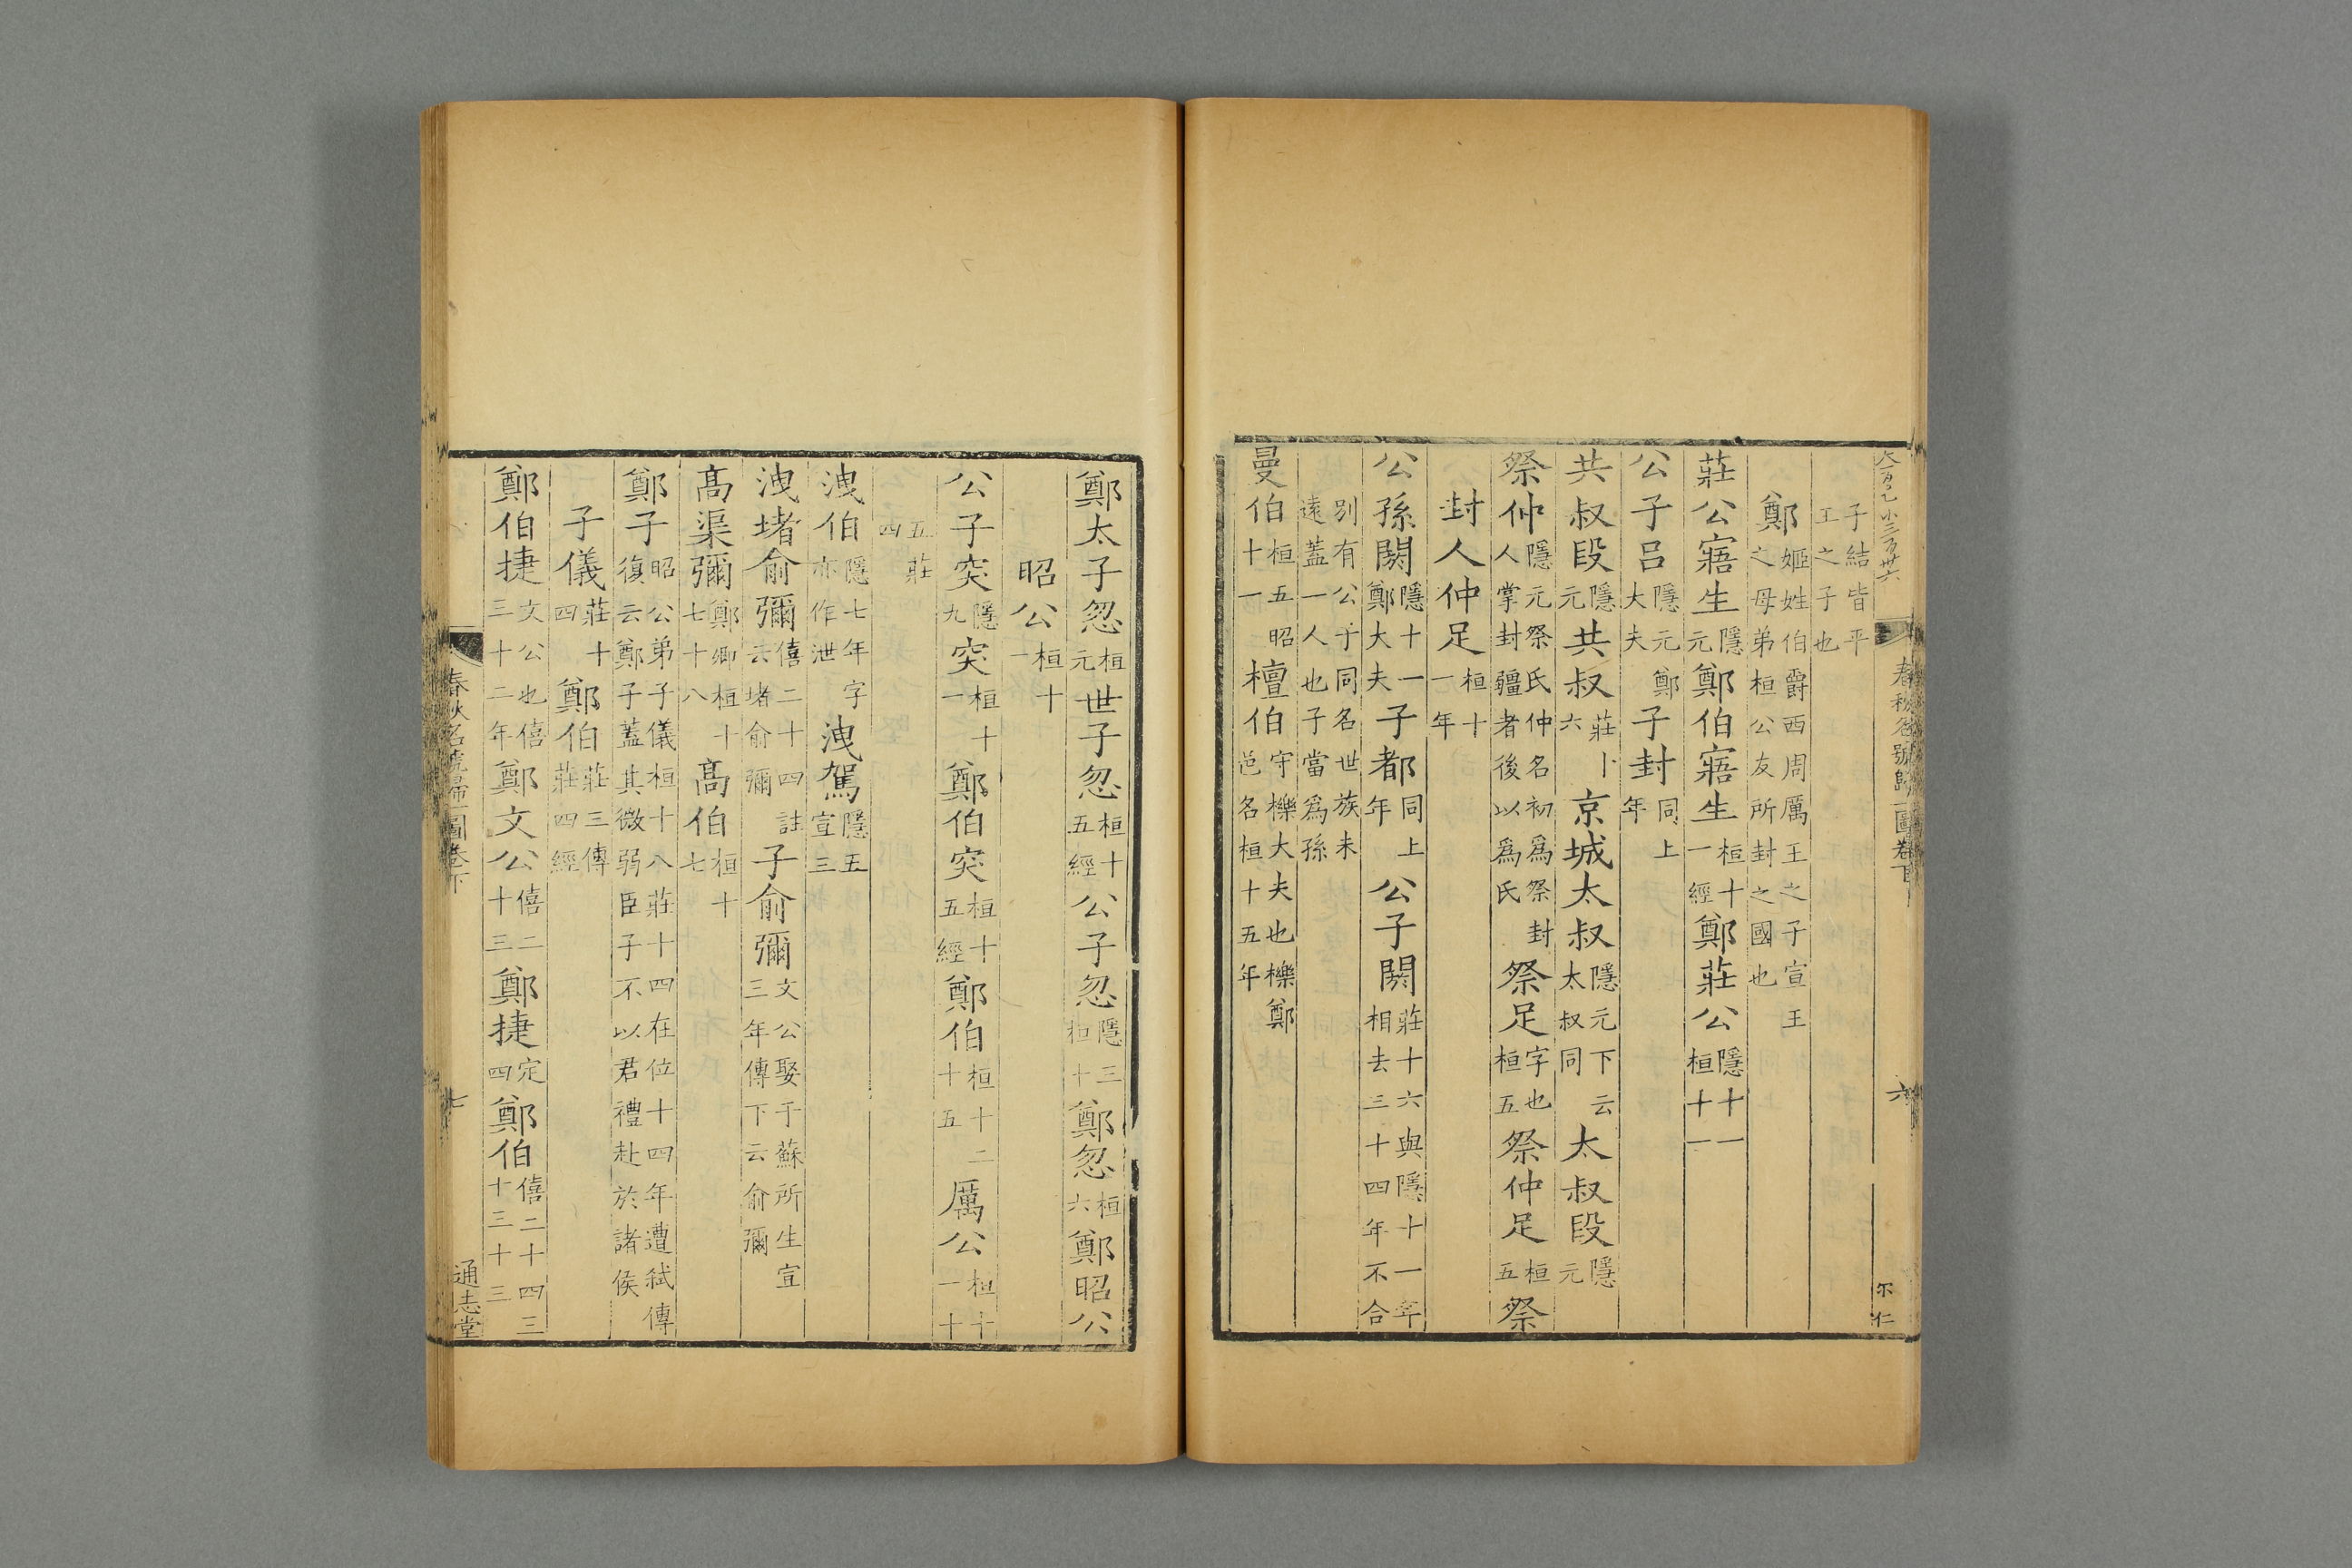 春秋名號歸一圖卷下
六
子結皆平
王之子也
鄭姬姓伯爵西周厲王之子宣王
之母弟桓公友所封之國也
莊公寤生隱元鄭伯寤生桓十一經鄭莊公隱十一桓十一
公子呂隱元鄭大夫子封同上年
共叔段隱元共叔莊十六京城太叔隱元下云太叔同太叔段隱元
祭仲隱元祭氏仲名初爲祭封人掌封疆者後以爲氏祭足字也桓五祭仲足桓五祭
封人仲足桓十一年
公孫閼隱十一鄭大夫子都同上年公子閼莊十六與隱十一年相去三十四年不合
別有公子同名世族未
遠蓋一人也子當爲孫
曼伯桓五昭十一檀伯守櫟大夫也櫟鄭邑名桓十五年
鄭太子忽桓元世子忽桓十五經公子忽隱三桓十鄭忽桓六鄭昭公
昭公桓十一
公子突隱九突桓十一鄭伯突桓十五經鄭伯桓十二十五厲公桓十一十
五莊
四
洩伯隱七年字亦作泄洩駕隱五宣三
洩堵俞彌僖二十四註云堵俞彌子俞彌文公娶于蘇所生宣三年傳下云俞彌
髙渠彌鄭卿桓十七十八髙伯桓十七
鄭子昭公弟子儀桓十八莊十四在位十四年遭弒傳復云鄭子蓋其微弱臣子不以君禮赴於諸侯
子儀莊十四鄭伯莊三傳莊四經
鄭伯捷文公也僖三十二年鄭文公僖二十三鄭捷定四鄭伯僖二十四三十三十三
春秋名號歸一圖卷下
七
通志堂